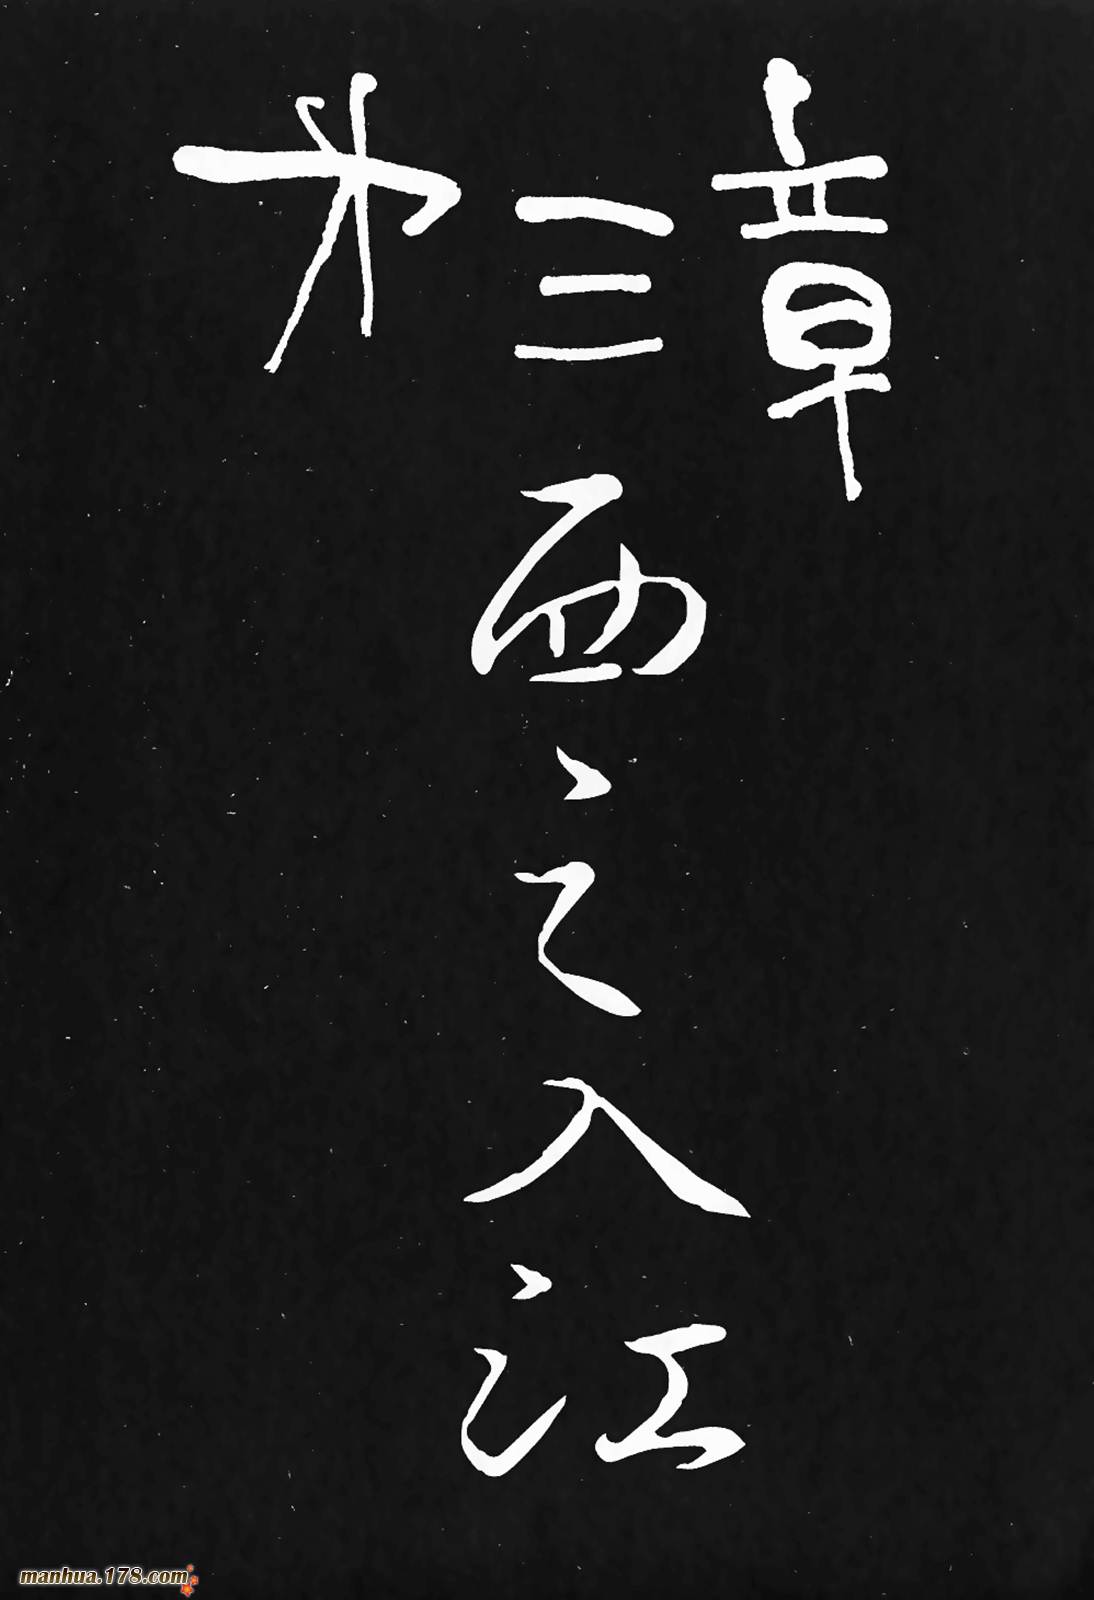 第三章
西之入江
manhua.178.com